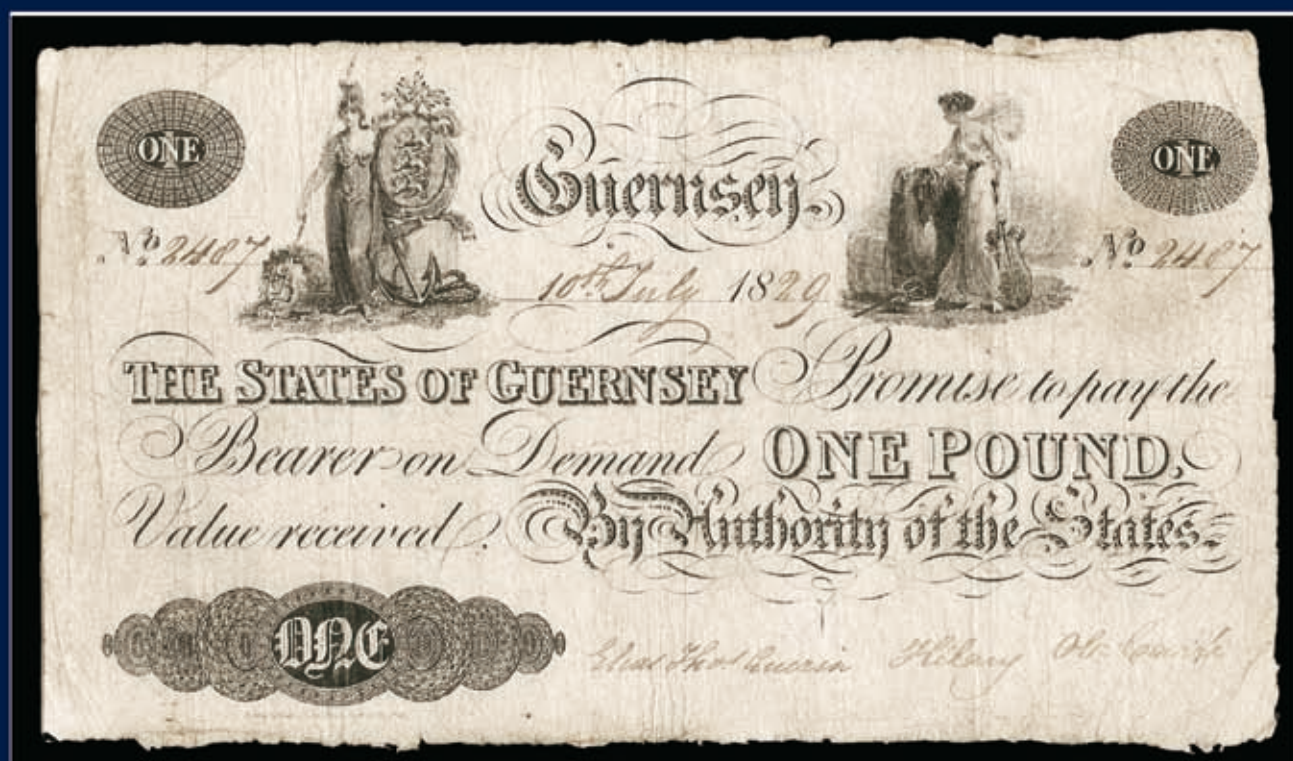 ONE
Guernsey.
ONE
No. 2487
No. 2487
10th July 1829
THE STATES OF GUERNSEY Promise to pay the
Bearer on Demand ONE POUND,
Value received. By Authority of the States.
ONE
Guerin Hilary